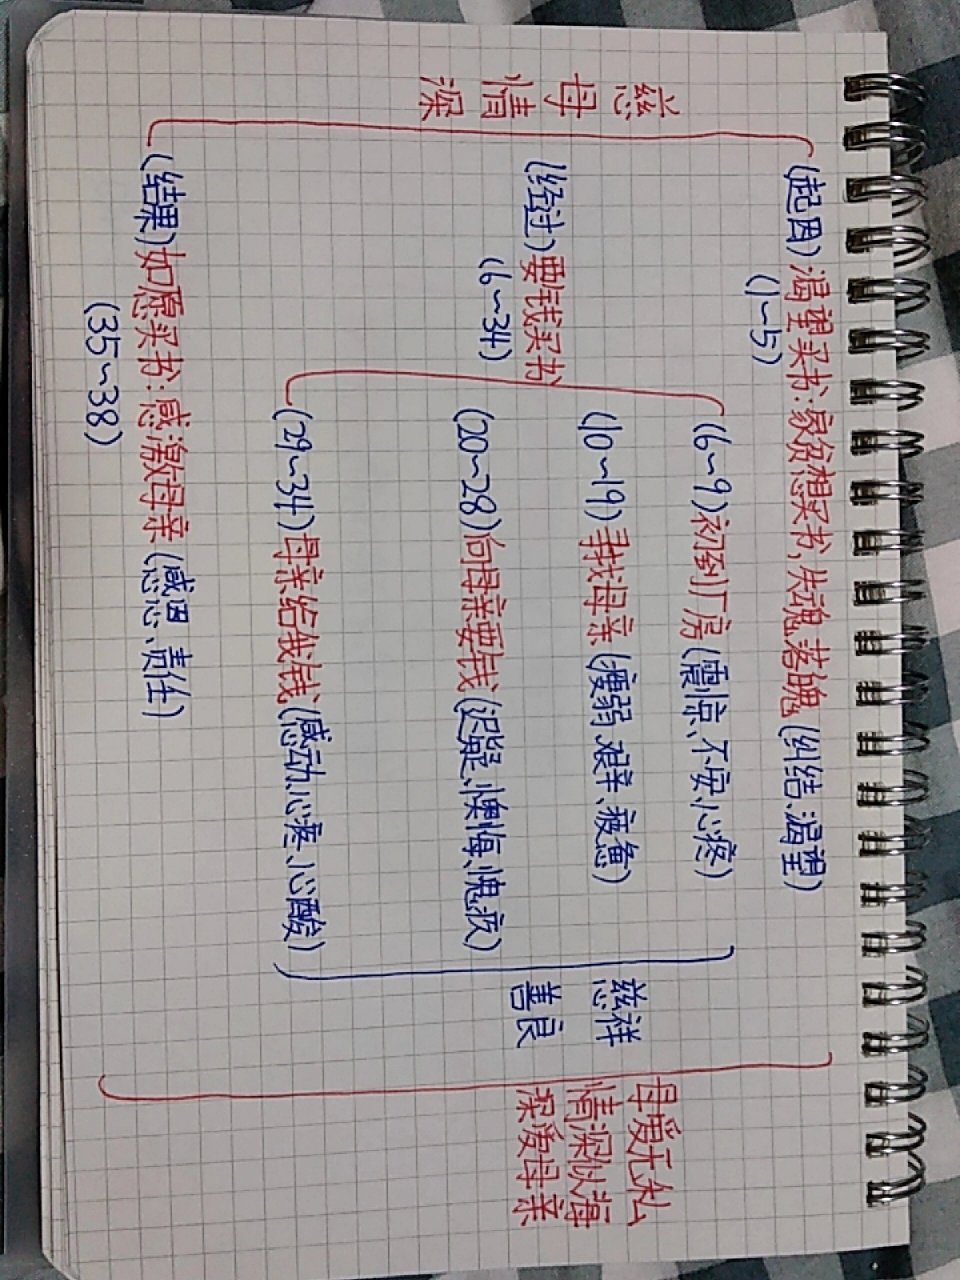 慈
母
情
深
(起因):渴望买书:家贫想买书,失魂落魄(纠结、渴望)
(1~5)
(经过)要钱买书
(6~34)
(6~9)初到厂房(震惊、不安、心疼)
(10~19)寻找母亲(瘦弱、艰辛、疲惫)
(20~28)向母亲要钱(迟疑、懊悔、愧疚)
(29~34)母亲给我钱(感动、心疼、心酸)
(结果)如愿买书:感激母亲(感恩、责任)
(35~38)
慈祥
善良
母爱无私
情深似海
深爱母亲